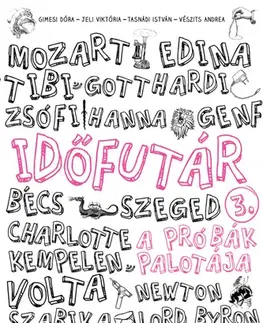 GIMESI DÓRA – JELI VIKTÓRIA – TASNÁDI ISTVÁN – VÉSZITS ANDREA
MOZART EDINA
TIBI GOTTHARDI
ZSÓFI HANNA GENF
IDŐFUTÁR
BÉCS SZEGED 3.
CHARLOTTE A PRÓBÁK
KEMPELEN PALOTÁJA
VOLTA NEWTON
SZABIKA LORD BYRON